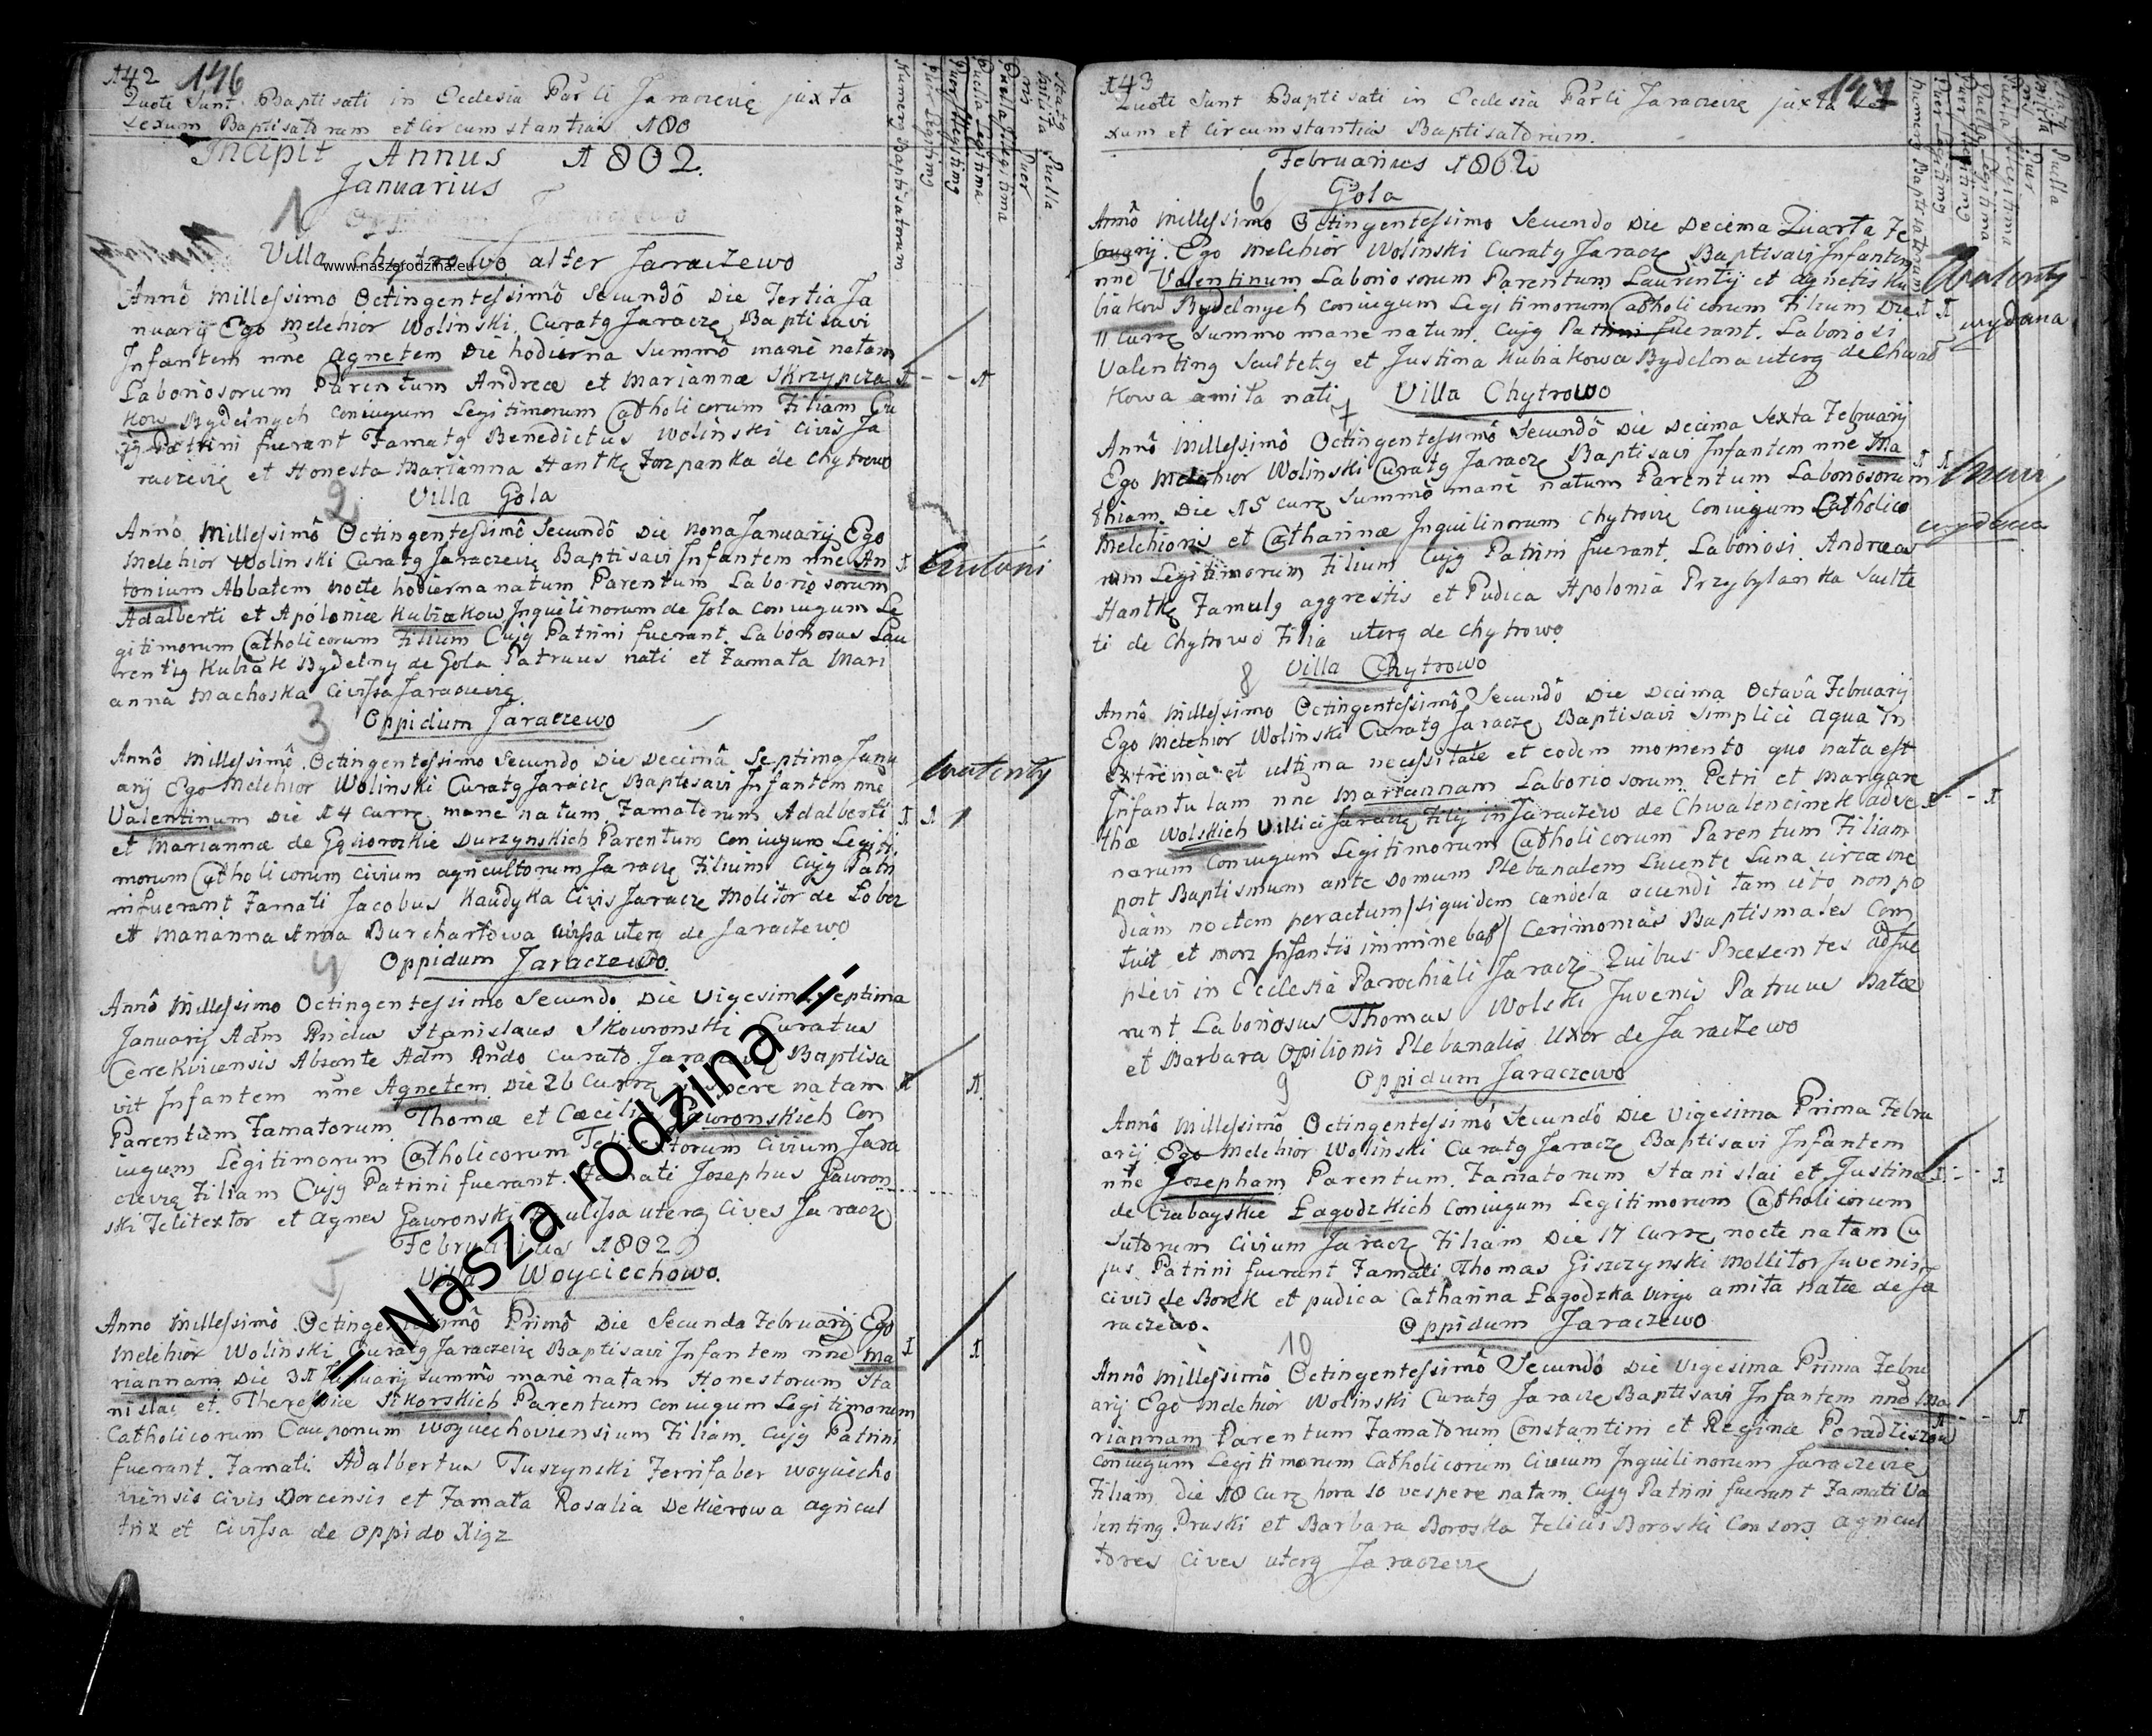 142 146
Quoti Sunt Baptisati in Ecclesia Par̃li Jaraczevię juxta
sexum Baptisatorum et circumstantias 180
Incipit Annus 1802.
Januarius
1
Villa Chytrowo alter Jaraczewo
www.naszarodzina.eu
Anno Millessimo Octingentessimô Secundô Die Tertia Ja
nuarij Ego Melchior Wolinski Curatg Jaraczę Baptisavi
Infantem nne Agnetem Die hodierna summô manè natam
Laboriosorum Parentum Andreæ et Mariannæ Skrzypcza
kow Bydelnych coniugum Legitimorum Catholicorum Filiam Cu
jg Patrini fuerant Famatg Benedictus Wolinski Civis Ja
raczevię et Honesta Marianna Hantkę Forpanka de Chytrowo
2
Villa Gola
Anno Millessimô Octingentessimô Secundô Die Nona Januarij Ego
Melchior Wolinski Curatg Jaraczevię Baptisavi Infantem nne An
tonium Abbatem nocte hodierna natum Parentum Laboriosorum
Adalberti et Apoloniæ Kubiakow Inquilinorum de Gola coniugum Le
gitimorum Catholicorum Filium Cujg Patrini fuerant. Laboriosus Lau
rentig Kubiak Bydelny de Gola Patruus nati et Famata Mari
anna Machoska Civissa Jaraczevię
Antoni
3
Oppidum Jaraczewo
Annô Millessimô Octingentessimo Secundo Die Decimâ Septima Janu
arij Ego Melchior Wolinski Curatg Jaraczę Baptisavi Infantem nne
Valentinum Die 14 currę mane natum Famatorum Adalberti
et Mariannæ de Durzynskich Parentum coniugum Legiti
morum Catholicorum civium agricultorum Jaraczę Filium Cujg Patri
ni fuerant Famati Jacobus Kaudyka Civis Jaraczę Molitor de Lober
et Marianna Anna Burchartowa civissa uterg de Jaraczewo
Walenty
4
Oppidum Jaraczewo.
Annô Millessimo Octingentessimo Secundo Die Vigesima Septima
Januarij Adm Rndus Stanislaus Skowronski Curatus
Cerekvicensis Absente Adm Rndo Curato Baptisa
vit Infantem nne Agnetem Die 26 Currę vespere natam
Parentum Famatorum Thomæ et Cæciliæ Gawronskich Con
iugum Legitimorum Catholicorum civium Jara
czevię Filiam Cujg Patrini fuerant. Famati Josephus Gawron
ski Telitextor et Agnes Gawronski uterg Cives Jaraczę
Februarius 1802
5
Villa Woyciechowo.
Anno Millessimô Octingentessimô Primô Die Secunda Februarij Ego
Melchior Wolinski Curatg Jaraczevię Baptisavi Infantem nne Ma
riannam Die 31 Januarij summô manè natam Honestorum Sta
nislai et Theresiæ Sikorskich Parentum coniugum Legitimorum
Catholicorum Cauponum Woyciechoviensium Filiam Cujg Patrini
fuerant. Famati Adalbertus Tuszynski Ferrifaber woyciecho
viensis civis Dorcensis et Famata Rosalia Dekierowa agricul
trix et Civissa de oppido Xigz
= Nasza rodzina =
143 147
Quoti Sunt Baptisati in Ecclesia Par̃li Jaraczevię juxta se
xum et circumstantias Baptisatorum.
Februarius 1802
6
Gola
Annô Millessimo Octingentessimo Secundo Die Decima Quarta Fe
bruarij. Ego Melchior Wolinski Curatg Jaraczę Baptisavi Infantem
nne Valentinum Laboriosorum Parentum Laurentij et Agnetis Ku
biakow Bydelnych coniugum Legitimorum Catholicorum Filium Die
11 currę summo mane natum. Cujg Patrini fuerant. Laboriosi
Valenting Scultetg et Justina Kubiakowa Bydelna uterg de Chwał
kowa amita nati
Walenty
wydana
7
Villa Chytrowo
Annô Millessimô Octingentessimô Secundô Die Decima Sexta Februarij
Ego Melchior Wolinski Curatg Jaraczę Baptisavi Infantem nne Ma
thiam Die 15 currę summô manè natum Parentum Laboriosorum
Melchioris et Catharinæ Inquilinorum Chytrovię Coniugum Catholico
rum Legitimorum Filium Cujg Patrini fuerant. Laboriosi. Andreas
Hantkę Famulg aggrestis et Pudica Apolonia Przybylanka Sculte
ti de Chytrowo Filia uterg de Chytrowo
wydana
8
Villa Chytrowo
Annô Millessimo Octingentessimô Secundô Die Decima Octava Februarij
Ego Melchior Wolinski Curatg Jaraczę Baptisavi simplici aqua in
extrema et ultima necessitate et eodem momento quo nata est
Infantulam nne Mariannam Laboriosorum Petri et Margare
thæ Wolskich Villici Jaraczę Filij in Jaraczew de Chwalencinek adve
narum Coniugum Legitimorum Catholicorum Parentum Filiam
post Baptismum ante Domum Plebanalem Lucente Luna circa me
diam noctem peractum / siquidem candela accendi tam cito non po
tuit et mors Infantis imminebat / Cerimonias Baptismales Com
plevi in Ecclesia Parochiali Jaraczę Quibus Præsentes adfue
runt Laboriosus Thomas Wolski Juvenis Patruus Natæ
et Barbara Opilionis Plebanalis Uxor de Jaraczewo
9
Oppidum Jaraczewo
Annô Millessimô Octingentessimô Secundô Die Vigesima Prima Febru
arij Ego Melchior Wolinski Curatg Jaraczę Baptisavi Infantem
nne Josepham Parentum Famatorum Stanislai et Justinæ
de Czabayskie Łagodzkich Coniugum Legitimorum Catholicorum
Sutorum Civium Jaraczę Filiam Die 17 Currę nocte natam Cu
jus Patrini fuerant Famati Thomas Giszczynski Mollitor Juvenis
civis de Borek et pudica Catharina Łagodzka virgo amita natæ de Ja
raczewo.
10
Oppidum Jaraczewo
Annô Millessimô Octingentessimô Secundô Die Vigesima Prima Febru
arij Ego Melchior Wolinski Curatg Jaraczę Baptisavi Infantem nne Ma
riannam Parentum Famatorum Constantini et Reginæ
coniugum Legitimorum Catholicorum Civium Inquilinorum Jaraczevię
Filiam Die 18 Currę hora 10 vespere natam Cujg Patrini fuerunt Famati Va
lenting Pruski et Barbara Boroska Felicis Boroski Consors agricul
tores Cives uterg Jaraczevię